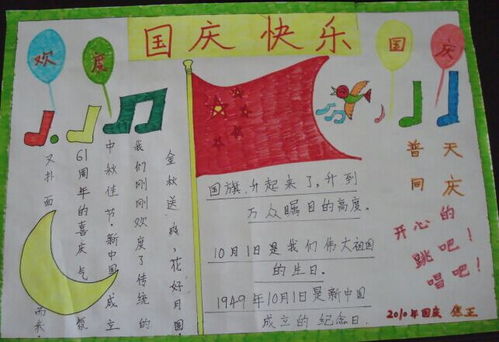 国庆快乐
欢度
国庆
金秋送爽，花好月圆，
我们刚刚欢度了传统的
中秋佳节，新中国成立
61周年的喜庆气氛
又扑面而来
国旗升起来了，升到
万众瞩目的高度。
10月1日是我们伟大祖国
的生日。
1949年10月1日是新中国
成立的纪念日.
普天
同庆
开心的
跳吧！
唱吧！
2010年国庆